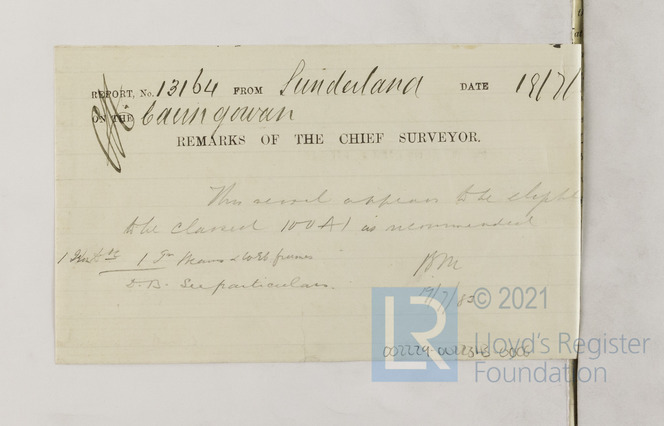 REPORT, No. 13164 FROM Sunderland DATE 18/7/
ON THE Cairngowan
REMARKS OF THE CHIEF SURVEYOR.
This vessel appears to be eligible
to be classed 100A1 as recommended
1 Tr Beams & Web frames
D.B. See particulars.
19/7/83
© 2021
LR
Lloyd's Register
Foundation
002229-002243-0006